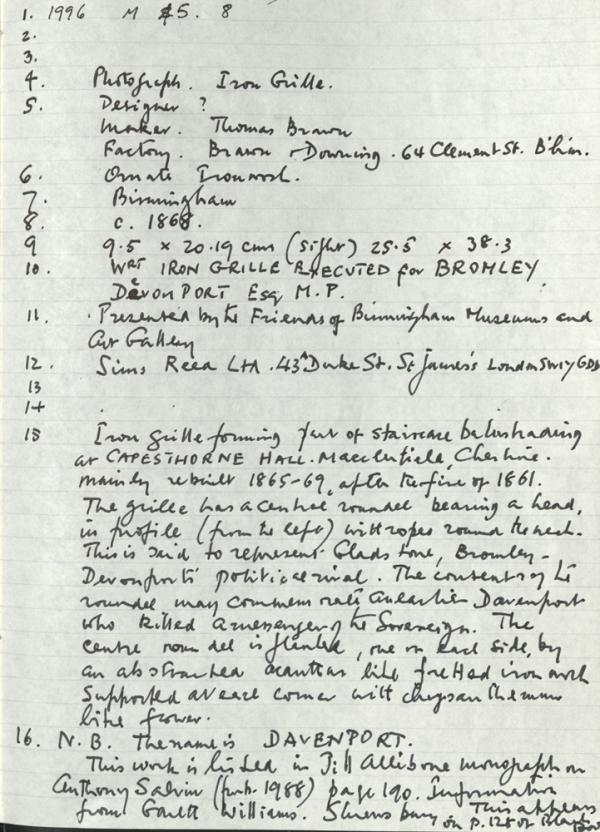 1. 1996 M 5. 8
2.
3.
4. Photograph. Iron Grille.
5. Designer ?
Maker. Thomas Brawn
Factory. Brawn & Downing. 64 Clement St. B'ham.
6. Ornate Ironwork.
7. Birmingham
8. c. 1868.
9 9.5 x 20.19 cms (sight) 25.5 x 38.3
10. WRT IRON GRILLE EXECUTED for BROMLEY
DEVONPORT Esq M.P.
11. Presented by the Friends of Birmingham Museums and
Art Gallery
12. Sims Reed Ltd. 43A Duke St. St James's London SW1Y 6DD
13
14
15 Iron grille forming part of staircase balustrading
at CAPESTHORNE HALL. Macclesfield, Cheshire.
mainly rebuilt 1865-69, after the fire of 1861.
The grille has a central roundel bearing a head,
in profile (from the left) with ropes round the neck.
This is said to represent Gladstone, Bromley-
Devonport's political rival. The contents of the
roundel may commemorate an earlier Davenport
who killed a messenger of the Sovereign. The
centre roundel is flanked, one on each side, by
an abstracted acanthus like fretted ironwork
supported at each corner with chrysanthemum
like flower.
16. N.B. The name is DAVENPORT.
This work is listed in Jill Allibone monograph on
Anthony Salvin (pub. 1988) page 190. Information
from Gareth Williams. Shrewsbury This appears
on p.128 of